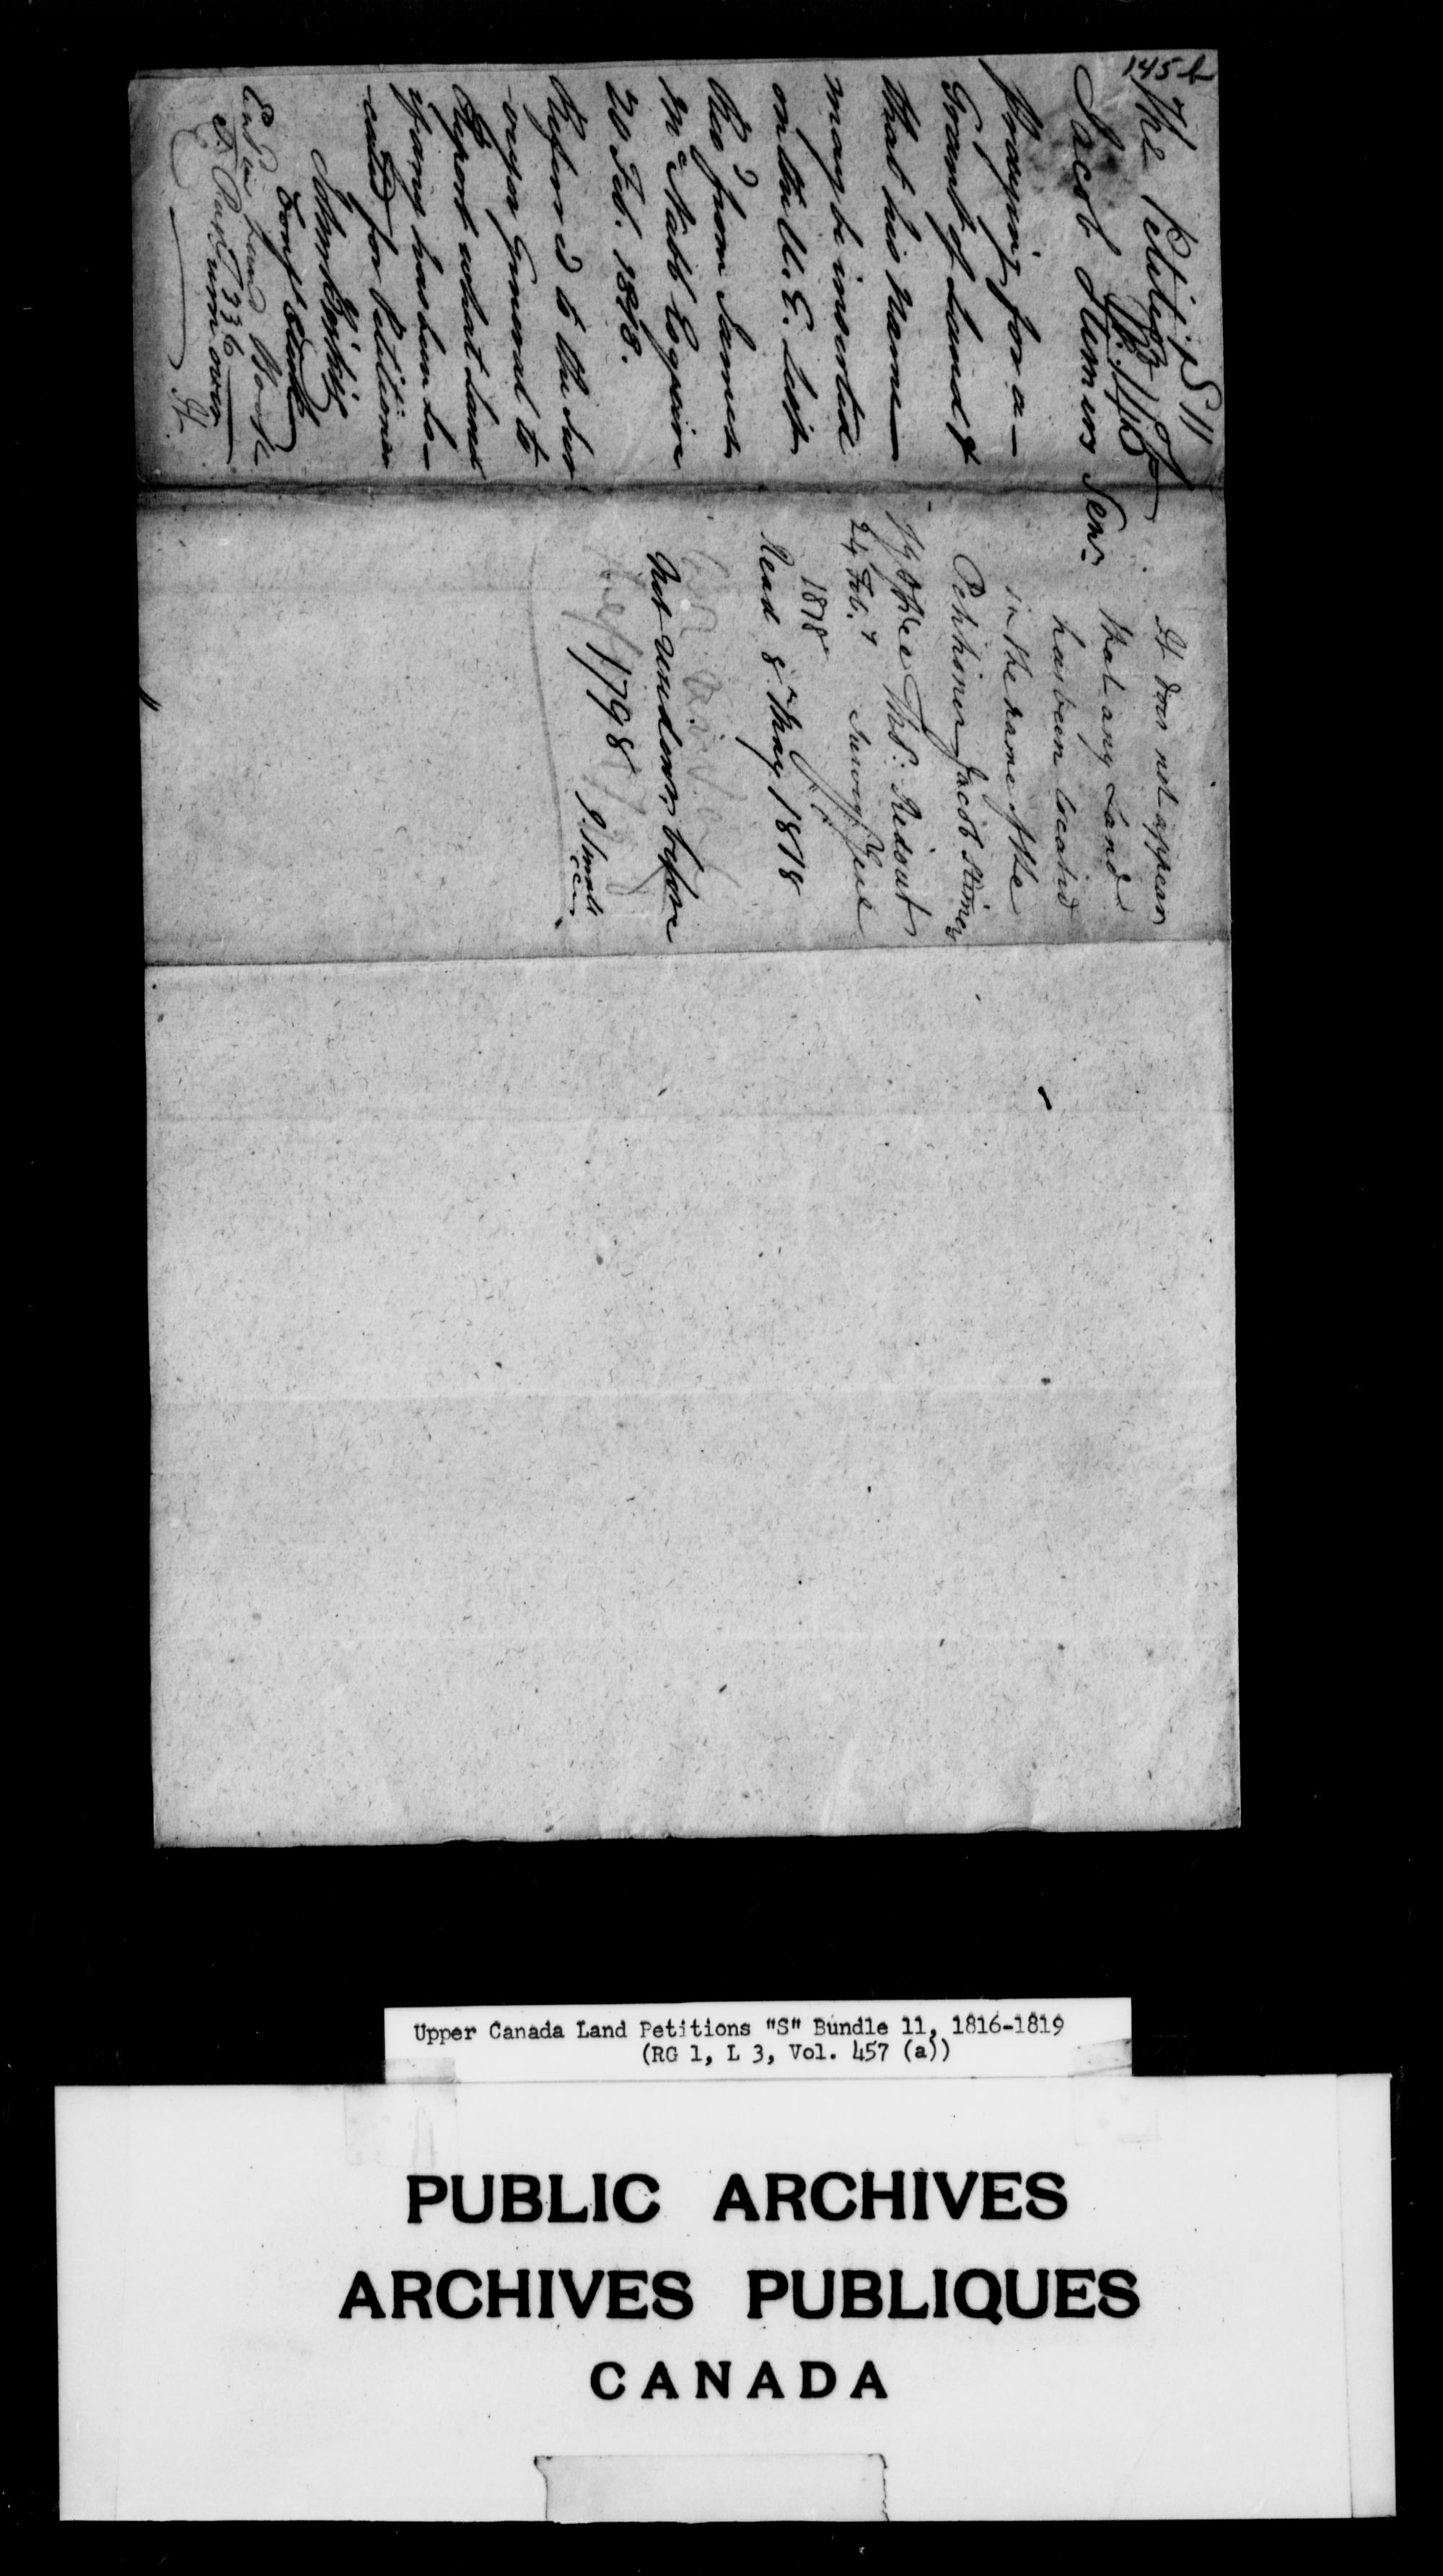 145 b
S 11
The Petition of
No. 145
Jacob Stimers Senr
praying for a
Grant of Land &
that his Name
may be inserted
on the U.E. List
Recd from James
McNabb Esquire
20 Feb. 1818.
Referred to the Sur
veyor General to
Report what Land
if any has been lo-
cated for Petitioner
John Beikie
Conf Clerk
Ent in Land Book
Page 336
It does not appear
that any Land
has been located
in the name of the
Petitioner Jacob Stimers
Thos: Ridout
24 Feb.y Survey Genl
1818
Read 8th May 1818
Not under before
1798
J. Small
Upper Canada Land Petitions "S" Bundle 11, 1816-1819
(RG 1, L 3, Vol. 457 (a))
PUBLIC ARCHIVES
ARCHIVES PUBLIQUES
CANADA